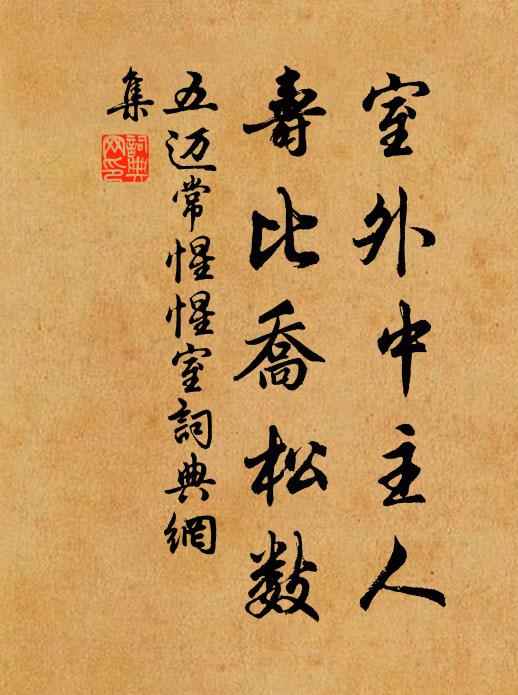 室外中主人
壽比喬松數
五迈常惺惺室詞典網
集
詞典
网印